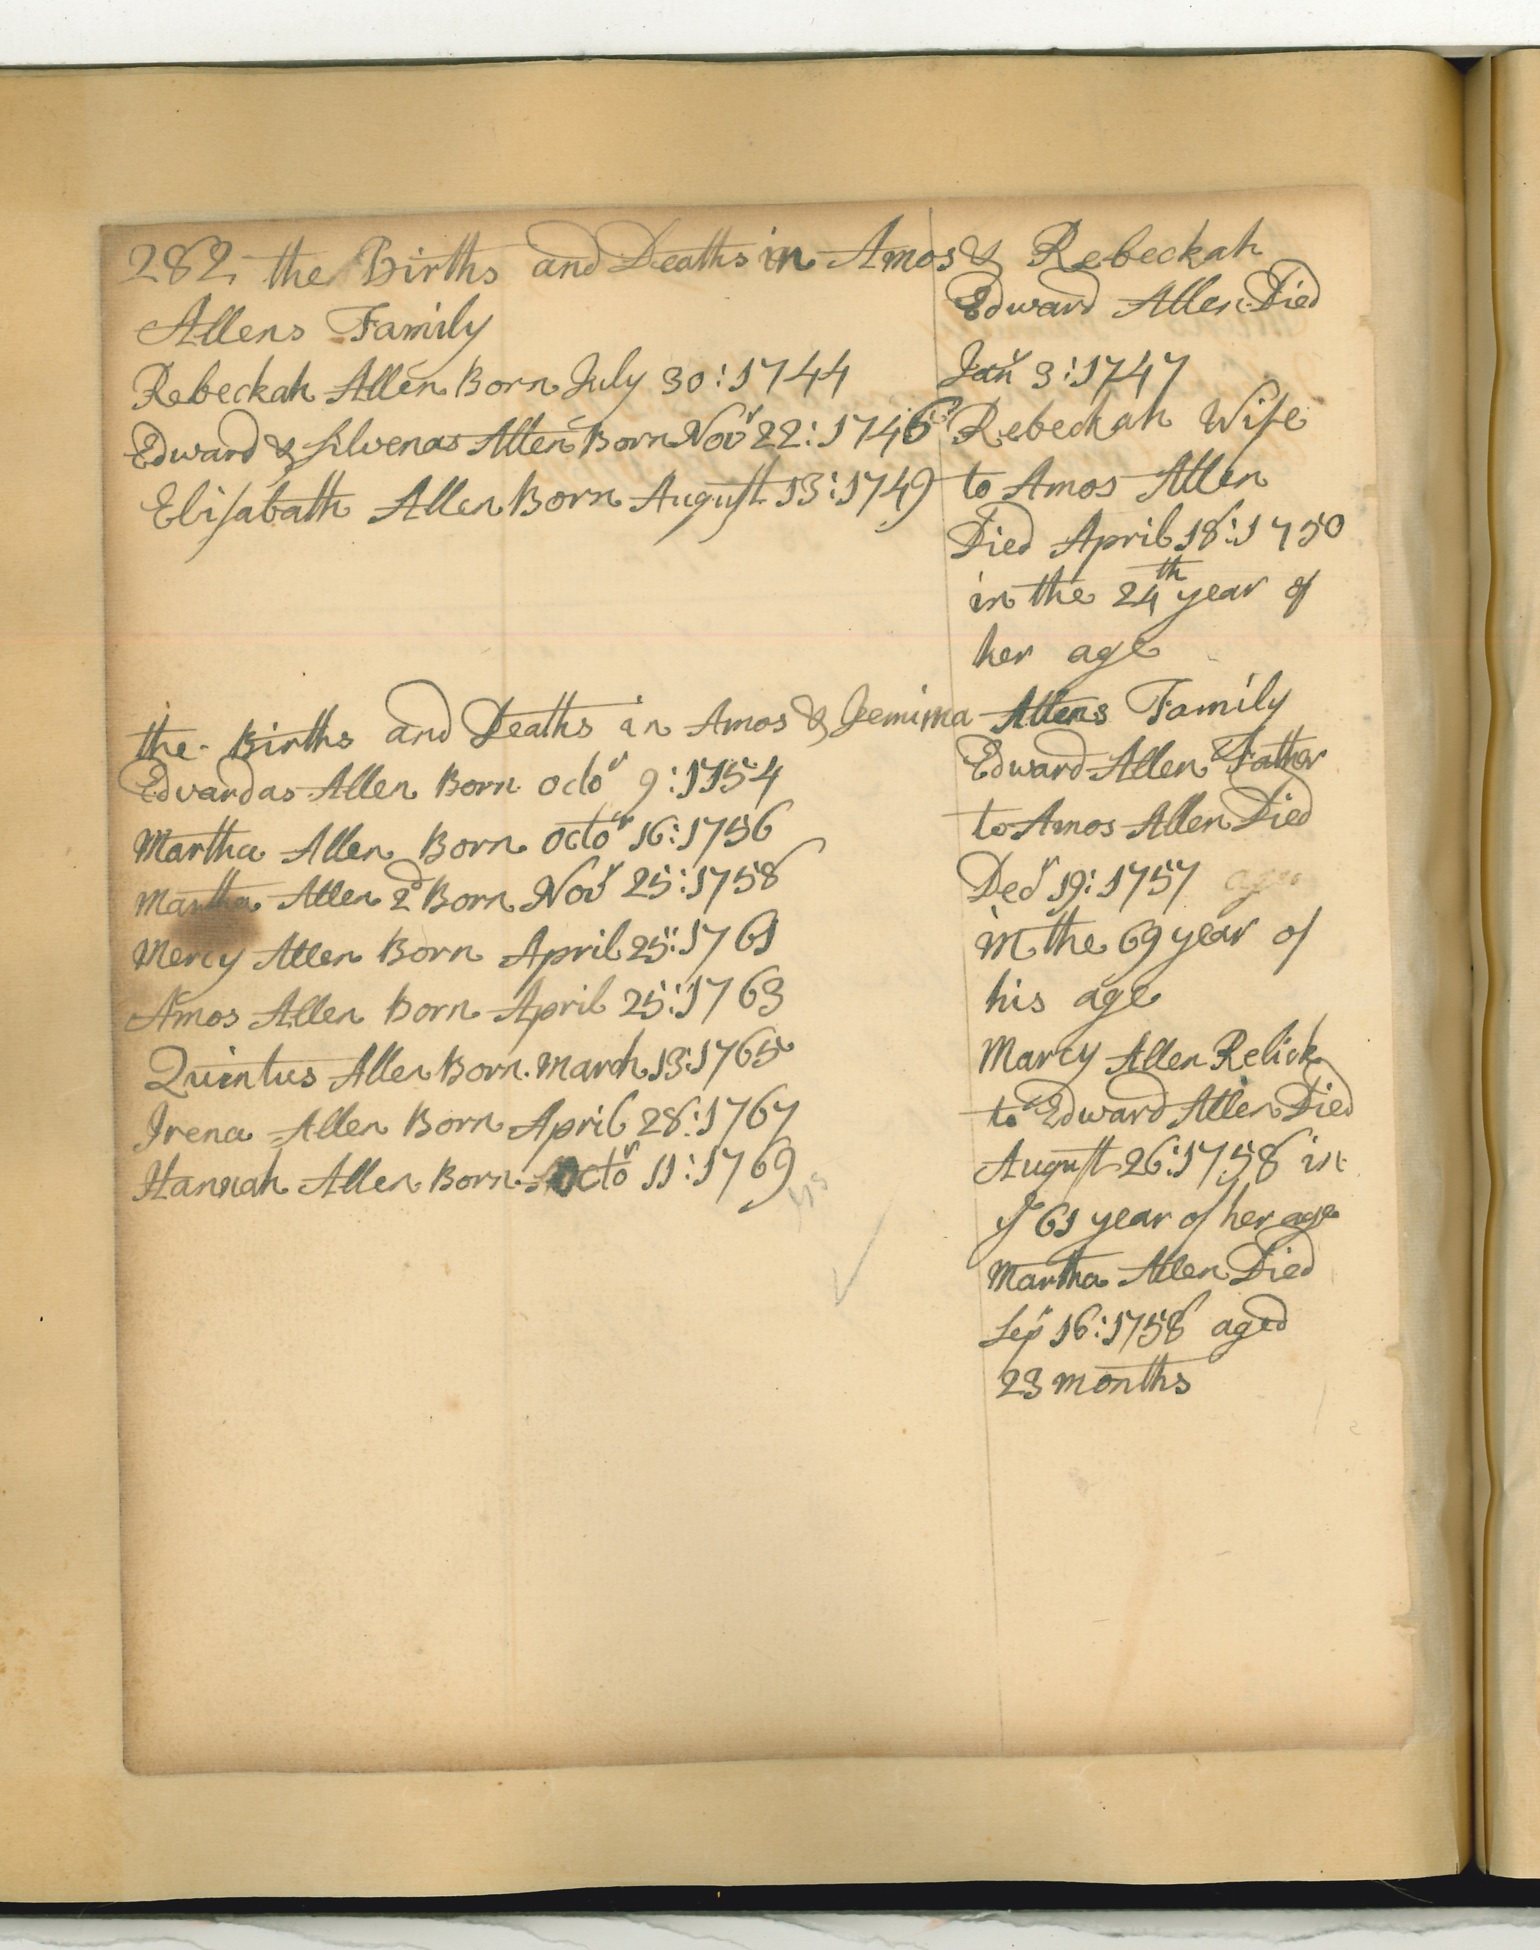 282 the Births and Deaths in Amos & Rebeckah
Allens Family
Rebeckah Allen Born July 30:1744
Edward & Silvenas Allen Born Novr 22:1746
Elisabath Allen Born August 13:1749
Edward Allen Died
Janr 3:1747
Rebeckah Wife
to Amos Allen
Died April 18:1750
in the 24th year of
her age
the Births and Deaths in Amos & Jemima Allens Family
Edvardas Allen Born octor 9:1754
Martha Allen Born octor 16:1756
Martha Allen 2d Born Novr 25:1758
Mercy Allen Born April 25:1761
Amos Allen Born April 25:1763
Quintus Allen Born March 13:1765
Irena Allen Born April 28:1767
Hannah Allen Born Octor 11:1769
Edward Allen Father
to Amos Allen Died
Decr 19:1757
in the 69 year of
his age
Marcy Allen Relick
to Edward Allen Died
August 26:1758 in
ye 61 year of her age
Martha Allen Died
Sepr 16:1758 aged
23 months